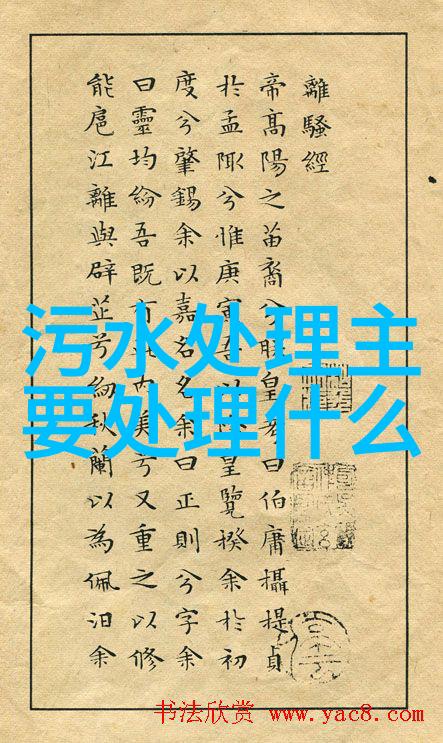 離騷經
帝高陽之苗裔兮朕皇考曰伯庸攝提貞
於孟陬兮惟庚寅吾以皇覽揆余於初
度兮肇錫余以嘉名名余曰正則兮字余
曰靈均紛吾既有此內美兮又重之以修
能扈江離與辟芷兮紉秋蘭以為佩汨余
污水处理主
要处理什么
书法欣赏 www.yac8.com